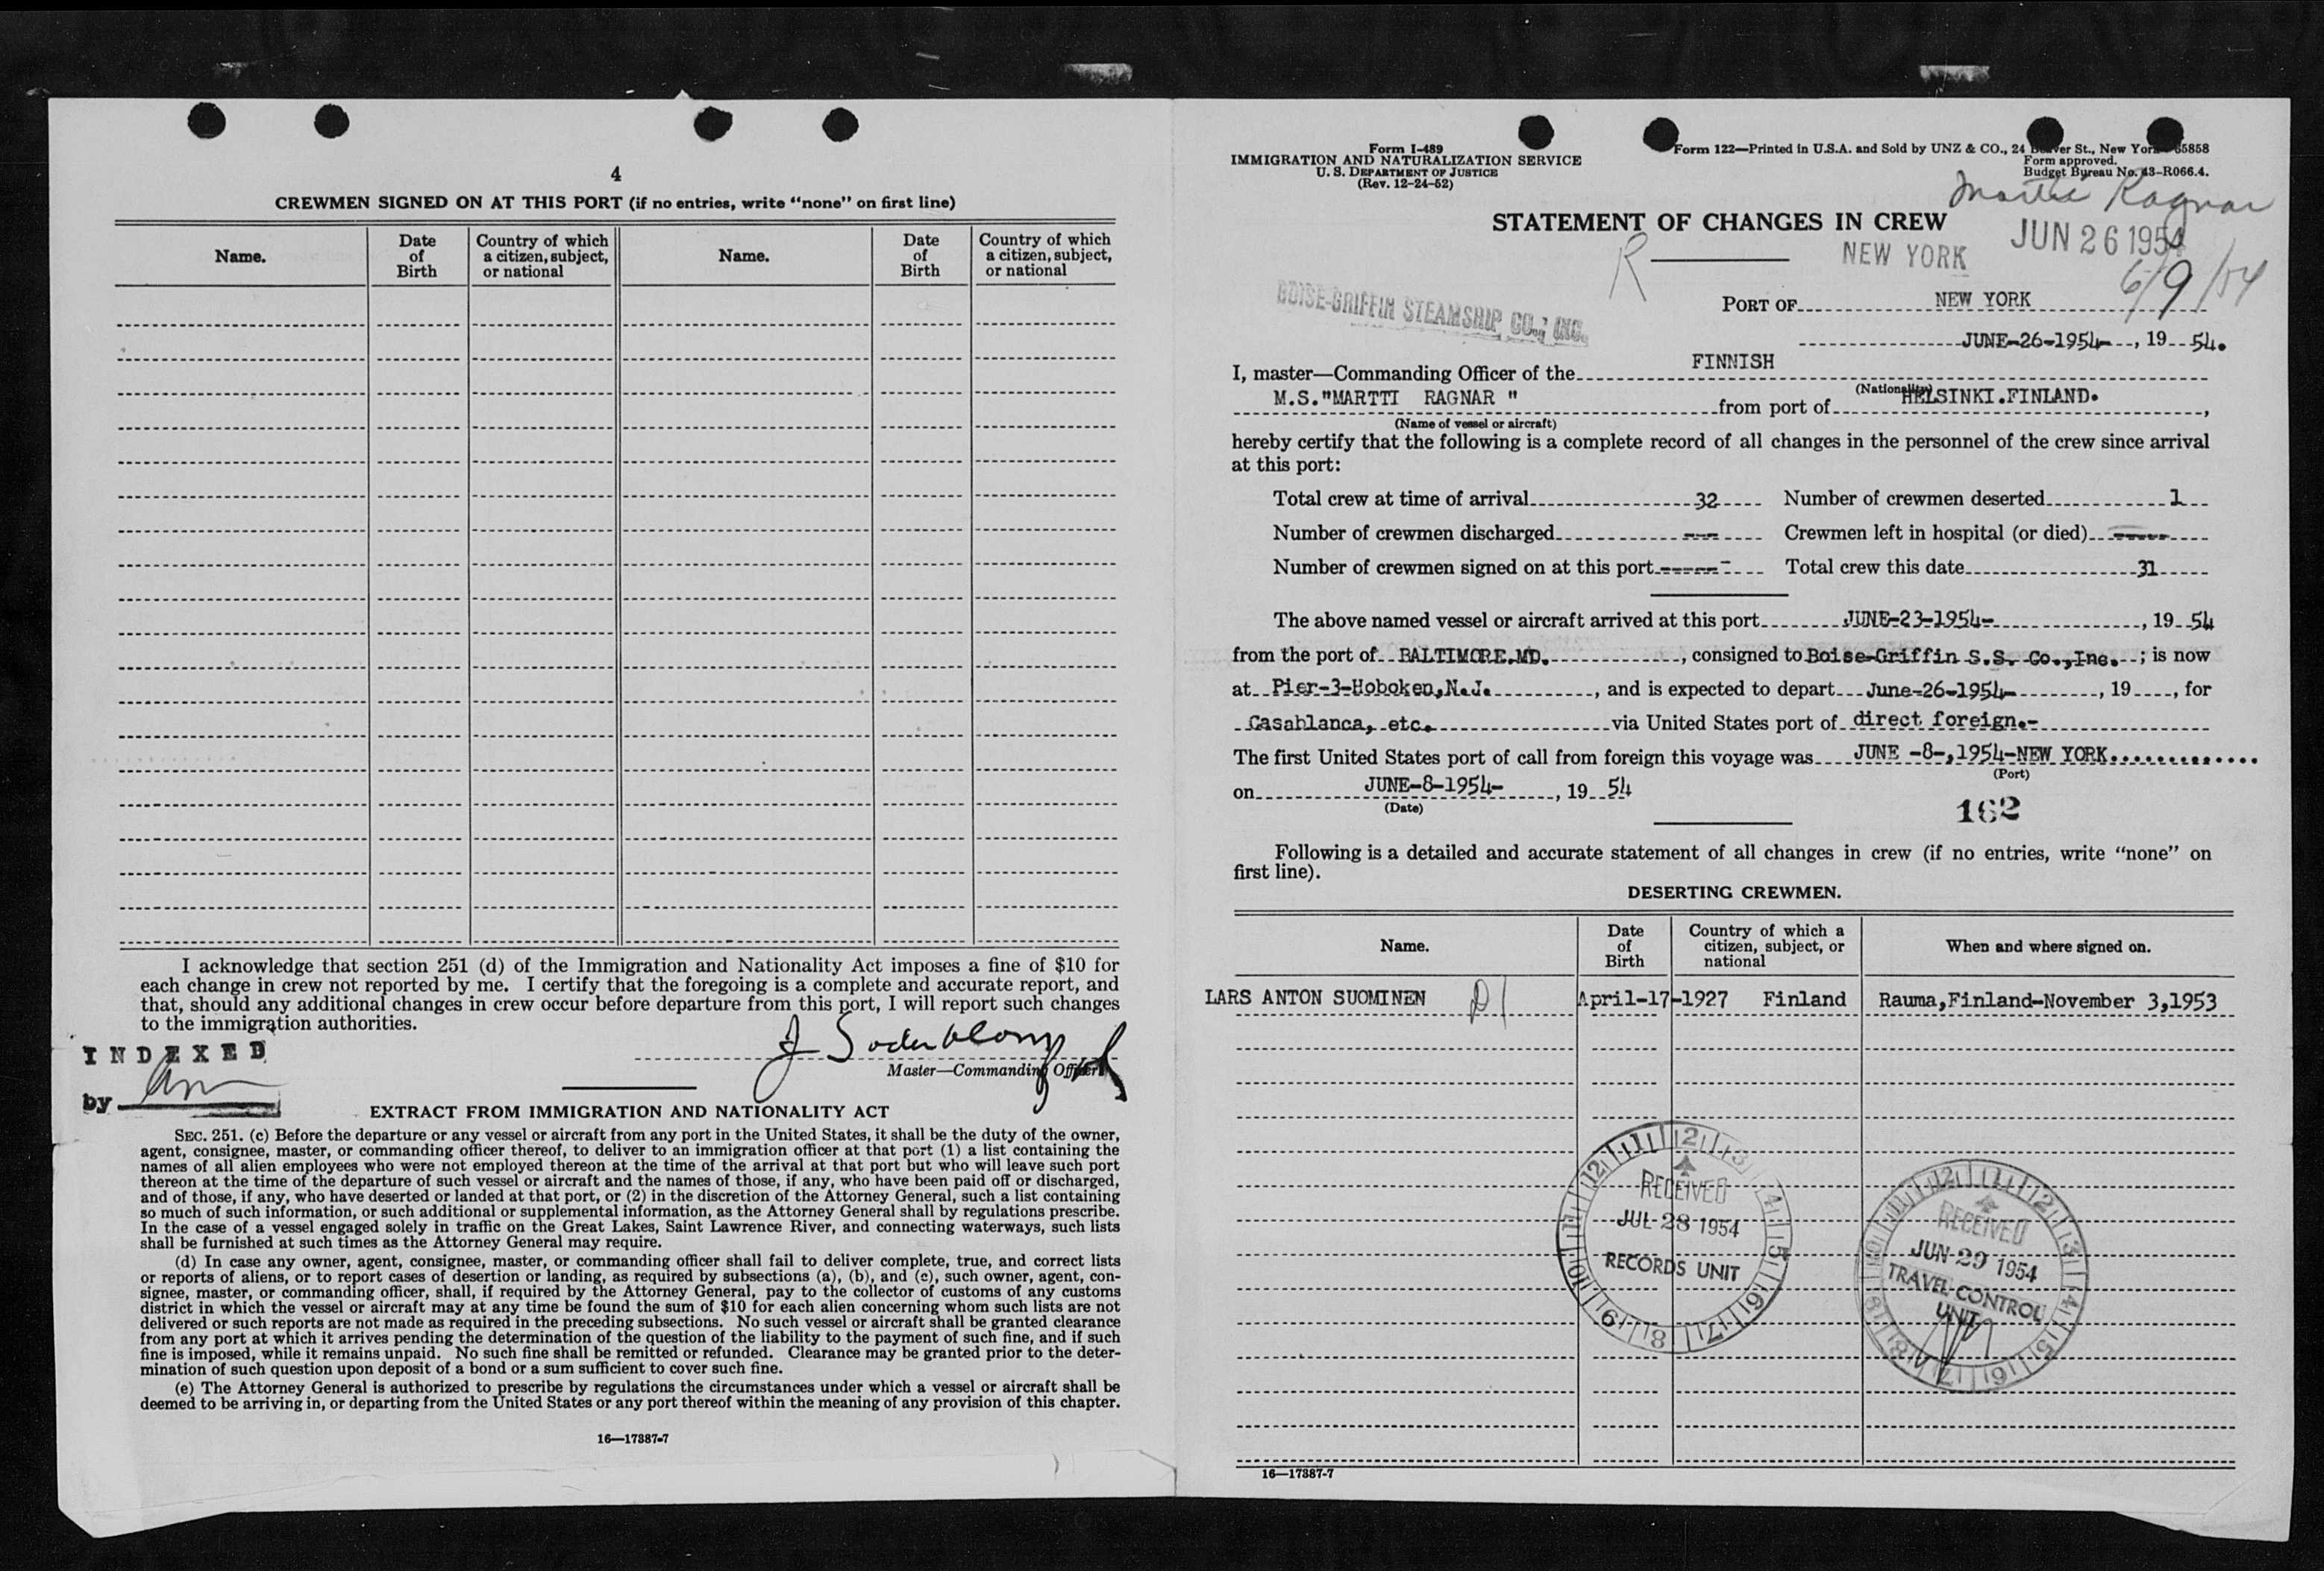 4
CREWMEN SIGNED ON AT THIS PORT (if no entries, write "none" on first line)
Name. Date of Birth Country of which a citizen, subject, or national Name. Date of Birth Country of which a citizen, subject, or national
I acknowledge that section 251 (d) of the Immigration and Nationality Act imposes a fine of $10 for
each change in crew not reported by me. I certify that the foregoing is a complete and accurate report, and
that, should any additional changes in crew occur before departure from this port, I will report such changes
to the immigration authorities.
INDEXED
by
J Soderblom
Master—Commanding Officer
EXTRACT FROM IMMIGRATION AND NATIONALITY ACT
SEC. 251. (c) Before the departure or any vessel or aircraft from any port in the United States, it shall be the duty of the owner,
agent, consignee, master, or commanding officer thereof, to deliver to an immigration officer at that port (1) a list containing the
names of all alien employees who were not employed thereon at the time of the arrival at that port but who will leave such port
thereon at the time of the departure of such vessel or aircraft and the names of those, if any, who have been paid off or discharged,
and of those, if any, who have deserted or landed at that port, or (2) in the discretion of the Attorney General, such a list containing
so much of such information, or such additional or supplemental information, as the Attorney General shall by regulations prescribe.
In the case of a vessel engaged solely in traffic on the Great Lakes, Saint Lawrence River, and connecting waterways, such lists
shall be furnished at such times as the Attorney General may require.
(d) In case any owner, agent, consignee, master, or commanding officer shall fail to deliver complete, true, and correct lists
or reports of aliens, or to report cases of desertion or landing, as required by subsections (a), (b), and (c), such owner, agent, con-
signee, master, or commanding officer, shall, if required by the Attorney General, pay to the collector of customs of any customs
district in which the vessel or aircraft may at any time be found the sum of $10 for each alien concerning whom such lists are not
delivered or such reports are not made as required in the preceding subsections. No such vessel or aircraft shall be granted clearance
from any port at which it arrives pending the determination of the question of the liability to the payment of such fine, and if such
fine is imposed, while it remains unpaid. No such fine shall be remitted or refunded. Clearance may be granted prior to the deter-
mination of such question upon deposit of a bond or a sum sufficient to cover such fine.
(e) The Attorney General is authorized to prescribe by regulations the circumstances under which a vessel or aircraft shall be
deemed to be arriving in, or departing from the United States or any port thereof within the meaning of any provision of this chapter.
16—17887-7
Form I-489
IMMIGRATION AND NATURALIZATION SERVICE
U. S. DEPARTMENT OF JUSTICE
(Rev. 12-24-52)
Form 122—Printed in U.S.A. and Sold by UNZ & CO., 24 St., New York 65858
Form approved.
Budget Bureau No. 43-R066.4.
Martti Ragnar
STATEMENT OF CHANGES IN CREW
R NEW YORK JUN 26 1954
6/9/54
BOISE-GRIFFIN STEAMSHIP CO., INC.
PORT OF NEW YORK
JUNE-26-1954-, 19 54.
I, master—Commanding Officer of the FINNISH
(Nationality)
M.S."MARTTI RAGNAR " from port of HELSINKI.FINLAND.,
(Name of vessel or aircraft)
hereby certify that the following is a complete record of all changes in the personnel of the crew since arrival
at this port:
Total crew at time of arrival 32 Number of crewmen deserted 1
Number of crewmen discharged --- Crewmen left in hospital (or died) -----
Number of crewmen signed on at this port ----- Total crew this date 31
The above named vessel or aircraft arrived at this port JUNE-23-1954-, 19 54
from the port of BALTIMORE.MD., consigned to Boise-Griffin S.S. Co.,Inc. ; is now
at Pier-3-Hoboken,N.J., and is expected to depart June-26-1954-, 19 , for
Casablanca, etc. via United States port of direct foreign.-
The first United States port of call from foreign this voyage was JUNE -8-,1954-NEW YORK.............
(Port)
on JUNE-8-1954-, 19 54
(Date)
162
Following is a detailed and accurate statement of all changes in crew (if no entries, write "none" on
first line).
DESERTING CREWMEN.
Name. Date of Birth Country of which a citizen, subject, or national When and where signed on.
LARS ANTON SUOMINEN D1 April-17-1927 Finland Rauma,Finland-November 3,1953
RECEIVED
JUL 28 1954
RECORDS UNIT
RECEIVED
JUN 29 1954
TRAVEL CONTROL
UNIT
16—17887-7